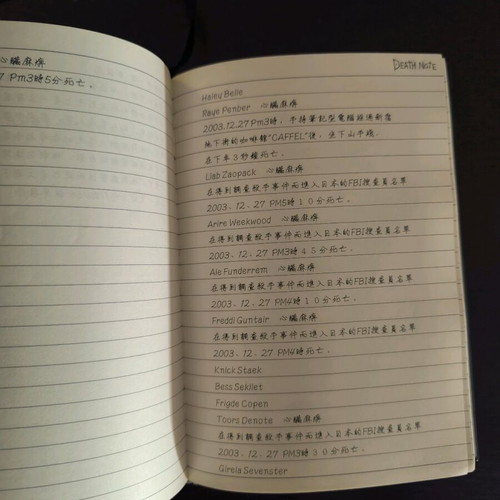 心臟麻痹
7 Pm3時5分死亡。
DEATH NOTE
Haley Belle
Raye Penber 心臟麻痹
2003.12.27 Pm3時,手持筆記型電腦經過新宿
地下街的咖啡館"CAFFEL"後,坐下山手線,
在下車3秒鐘死亡。
Liab Zaopack 心臟麻痹
在得到調查殺手事件而進入日本的FBI搜查員名單
2003、12、27 PM5時10分死亡。
Arire Weekwood 心臟麻痹
在得到調查殺手事件而進入日本的FBI搜查員名單
2003、12、27 PM3時45分死亡。
Ale Funderrem 心臟麻痹
在得到調查殺手事件而進入日本的FBI搜查員名單
2003、12、27 PM4時10分死亡。
Freddi Guntair 心臟麻痹
在得到調查殺手事件而進入日本的FBI搜查員名單
2003、12、27 PM4時死亡。
Knick Staek
Bess Sekllet
Frigde Copen
Toors Denote 心臟麻痹
在得到調查殺手事件而進入日本的FBI搜查員名單
2003、12、27 PM3時30分死亡。
Girela Sevenster